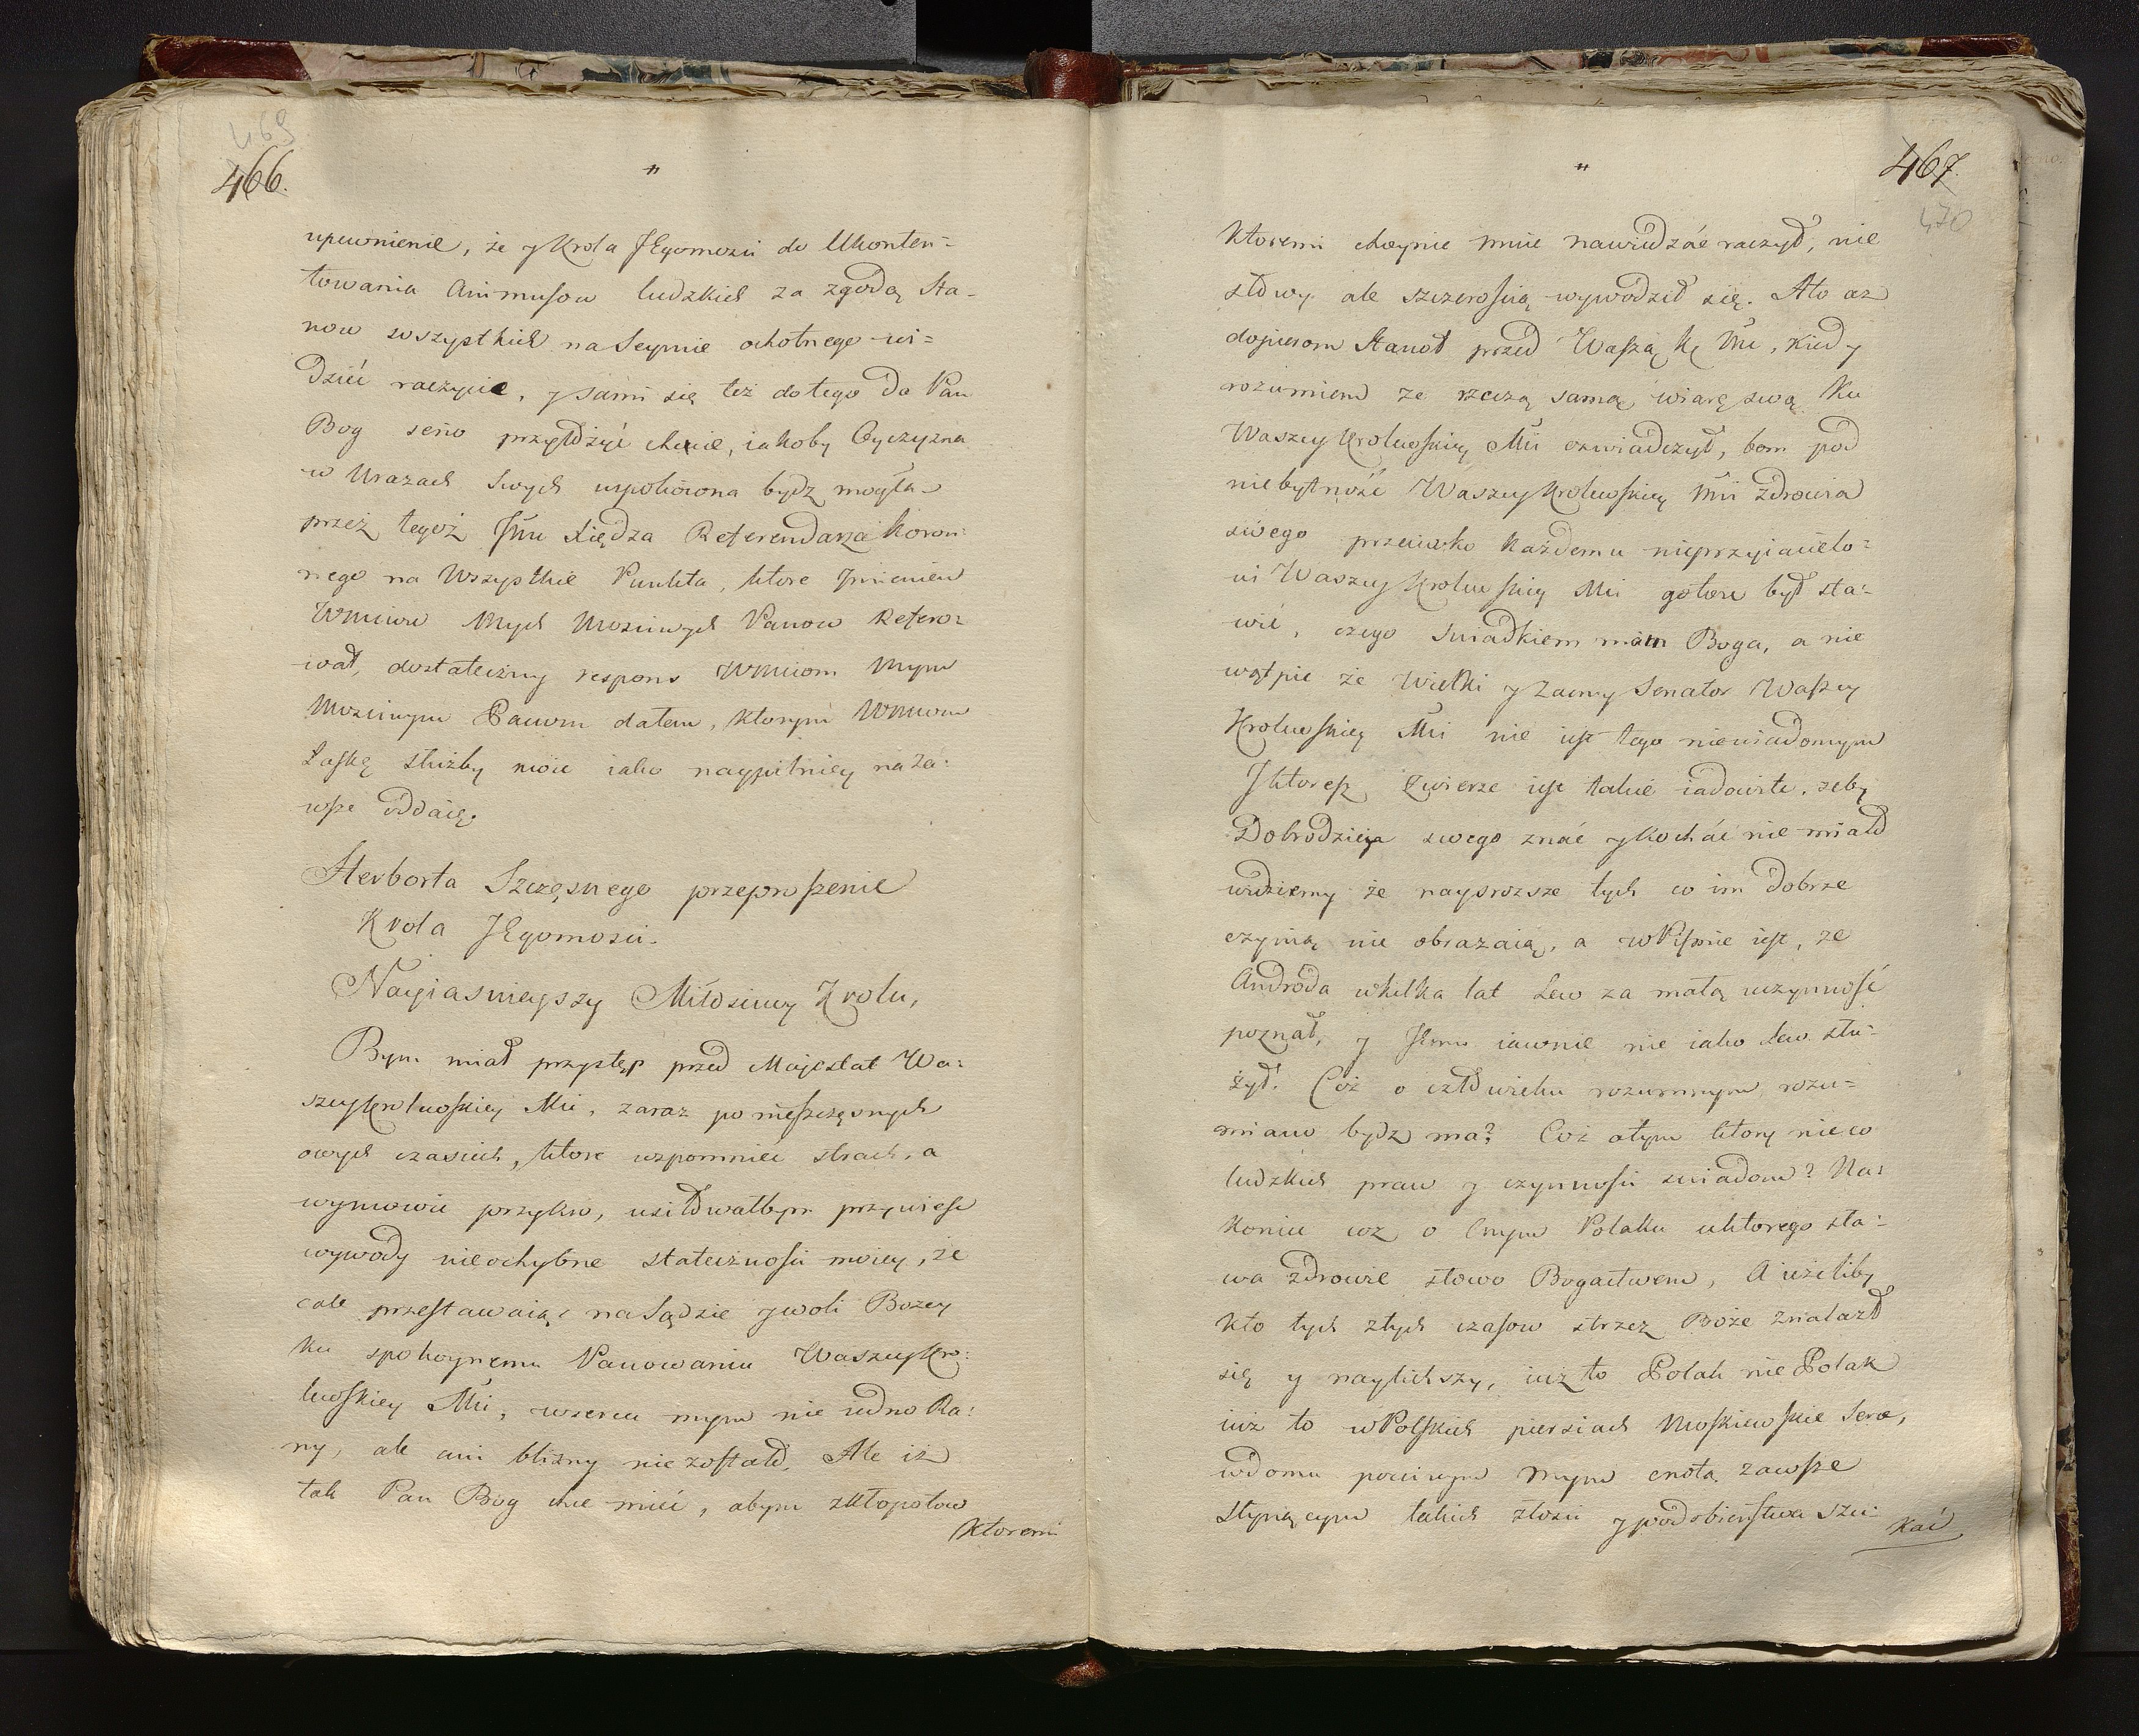 469
466.
"
upewnienie, że y Krola JEgomosci do Ukonten-
towania Animusow ludzkich za zgodą Sta-
now wszystkich na Seymie ochotnego wi-
dzieć raczycie, y sami się też do tego da Pan
Bog seńo przyłożyć chcecie, iakoby Oyczyzna
w Urazach Swych uspokoiona bydz mogła
przez tegoż Jmć Xiędza Referendarza Koron:
nego na Wszystkie Punkta, ktore Imieniem
Wmciow Mych Mosciwych Panow Refero:
wał, dostateczny respons Wmciom Mym
Mosciwym Panom dałem, ktorym Wmciom
Łaskę służby moie iako naypilniey na Za:
wsze oddaię.
Herborta Szczęsnego przeproszenie
Krola JEgomosci.
Nayiasnieyszy Miłosciwy Krolu,
Bym miał przystęp przed Majestat Wa:
szey Krolewskiey Mci, zaraz po nieszczęsnych
owych czasiech, ktore wspomnieć strach, a
wymowić przykro, usiłowałbym przynieść
wywody nieochybne stateczności moiey, że
cale przestawaiąc na Sądzie y woli Bozey
ku spokoynemu Panowaniu Waszey Kro:
lewskiey Mci, w sercu mym nie iedno Ra:
ny, ale ani blizny nie zostało. Ale iż
tak Pan Bog chce mieć, abym z kłopotow
ktoremi
"
467
470
Ktoremi choynie mnie nawiedzać raczył, nie
słowy ale szczerością wywodził się. Ato aż
dopierom Stanął przed Waszą Kr Mć, Kiedy
rozumiem ze rzeczą samą wiarę swą Ku
Waszey Krolewskiey Mci oswiadczył, bom pod
niebytność Waszey Krolewskiey Mci Zdrowia
swego przeciwko Każdemu nieprzyiacielo:
wi Waszey Krolewskiey Mci gotow był sta:
wić, czego Swiadkiem mam Boga, a nie
wątpie że Wielki y Zacny Senator Waszey
Krolewskiey Mci nie iest tego niewiadomym
I ktoresz Zwierze iest takie iadowite, żeby
Dobrodzieja swego znać y Kochać nie miało
widziemy że naysrozsze tych co im dobrze
czynią nie obrazaią, a w Pismie iest, ze
Andróda w kilka lat Lew za małą uczynność
poznał, y Jemu iawnie nie iako Lew słu-
żył. Coż o człowieku rozumnym rozu-
miano bydz ma? Coż o tym ktory nieco
ludzkich praw y czynności swiadom? Na:
Koniec coż o Cnym Polaku u ktorego sła:
wa zdrowie słowo Bogactwem, A ieżeliby
Kto tych złych czasow strzez Boże Znalazł
się y naylichszy, iuż to Polak nie Polak
iuż to w Polskich piersiach Moskiewskie Serce,
w domu poczciwym Mym cnotą zawsze
Słynącym takich złosci y podobieństwa szu-
Kać